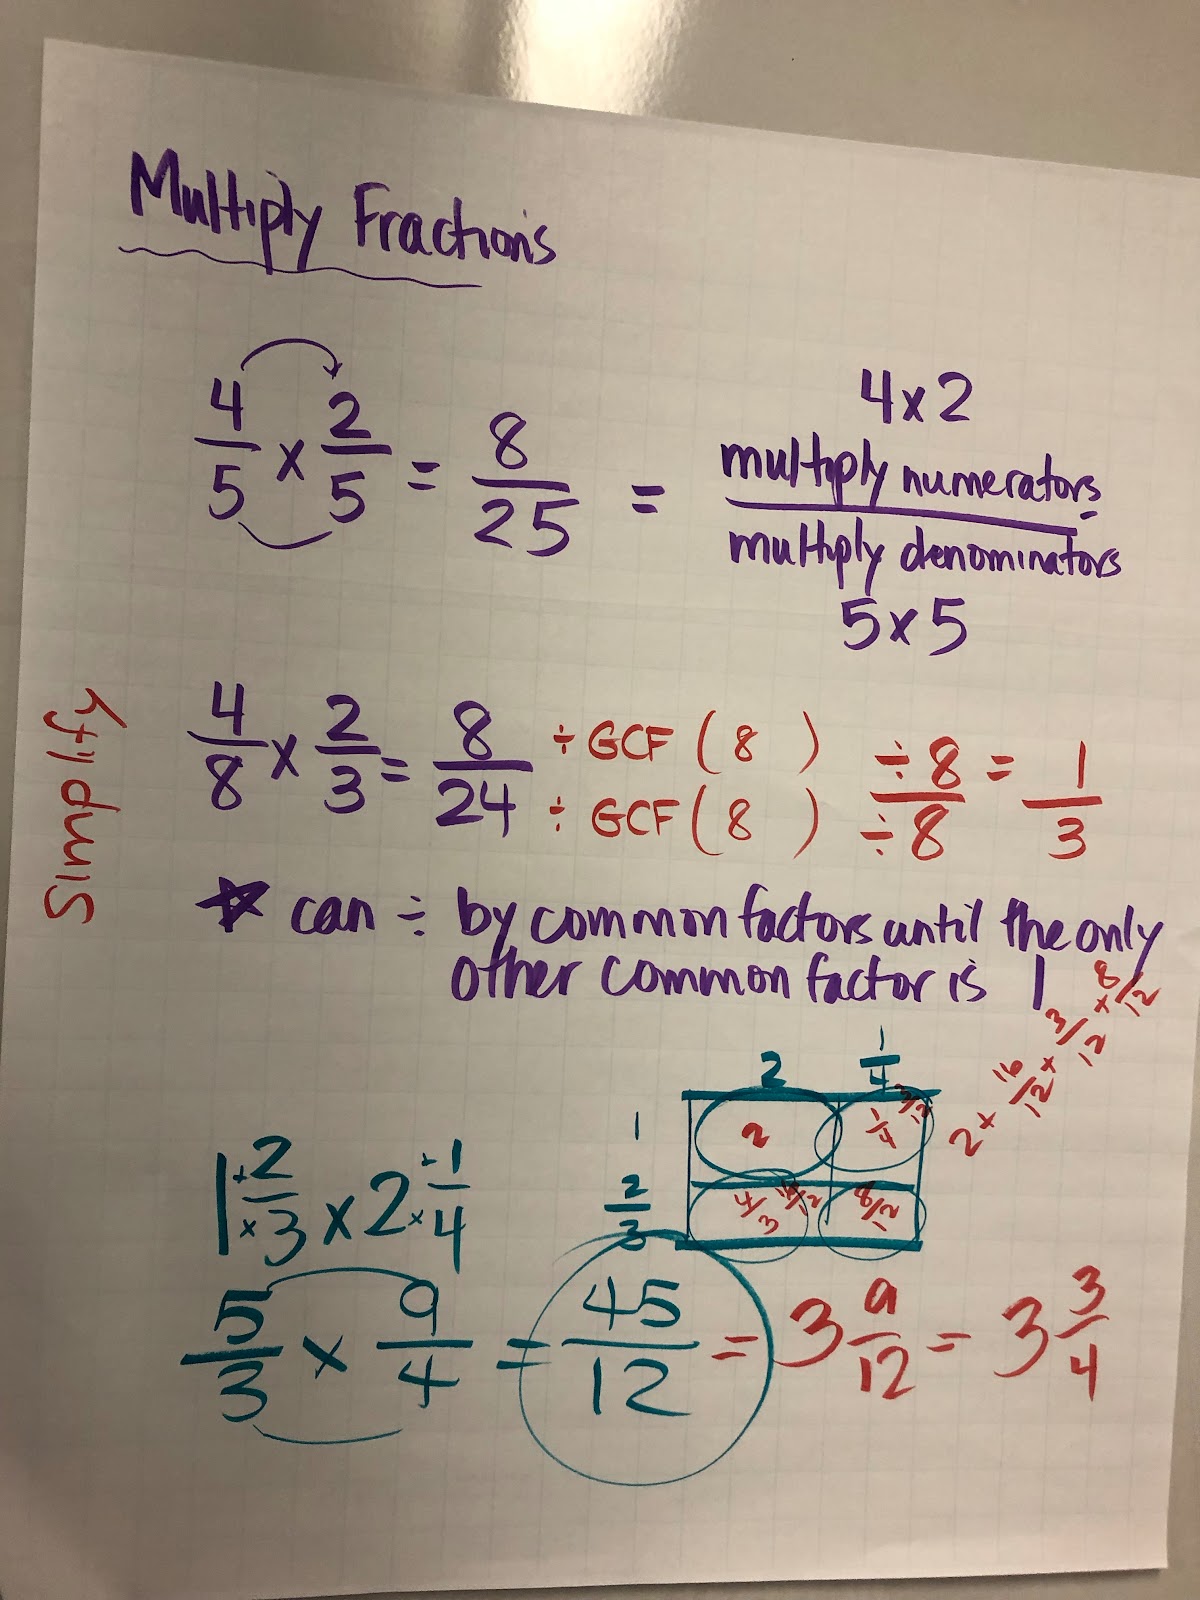 Multiply Fractions
4/5 × 2/5 = 8/25 = 4×2 multiply numerators / multiply denominators 5×5
Simplify
4/8 × 2/3 = 8/24 ÷ GCF ( 8 ) / ÷ GCF ( 8 ) ÷8/÷8 = 1/3
☆ can ÷ by common factors until the only
other common factor is 1
2 + 16/12 + 3/12 + 8/12
2 1/4
1 2 1/4 3/12
2/3 4/3 16/12 8/12
1 + 2/× 3 × 2 + 1/× 4
5/3 × 9/4 = 45/12 = 3 9/12 = 3 3/4